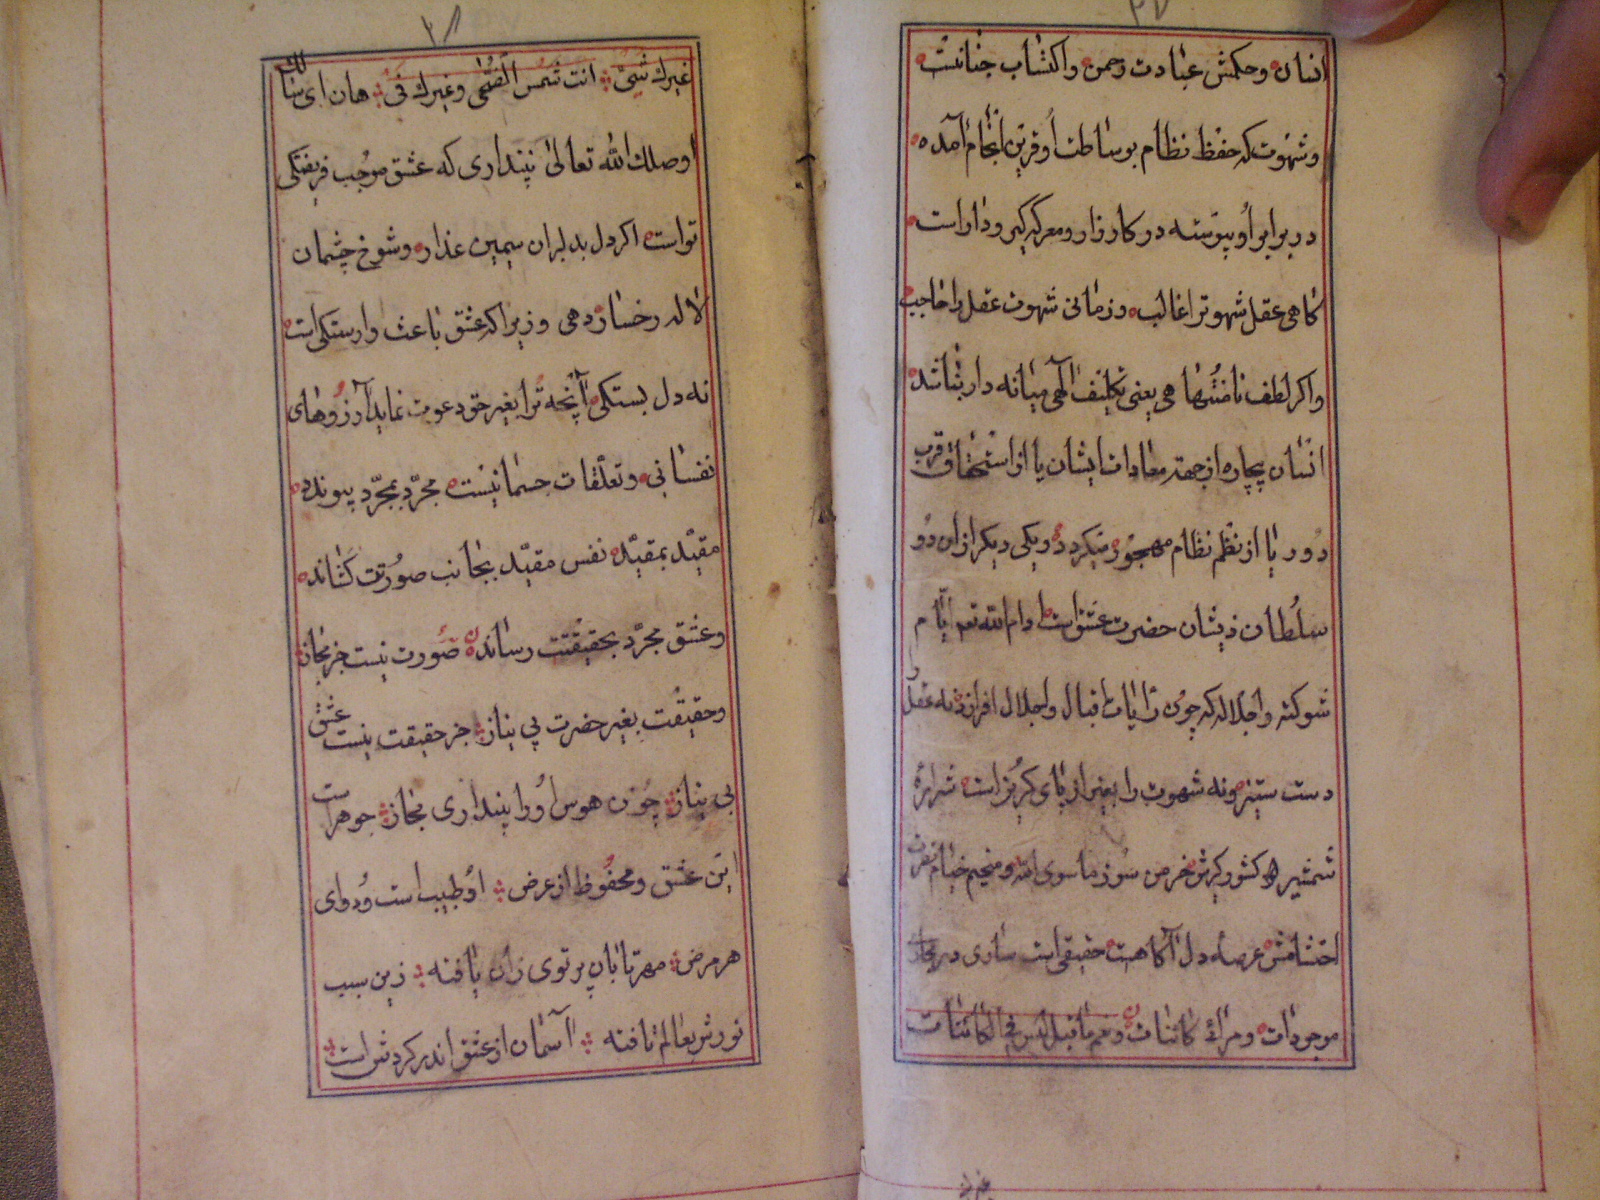 ۲۷
انسان وحکمش عبادت رحمن واکتساب جنانست
وشهوت که حفظ نظام بوساطت او قرین انجام آمده
در برابر او پیوسته در کارزار ومعرکه کیر ودار است
کاهی عقل شهوترا غالب وزمانی شهوت عقل را حاجب
واکر لطف نامنتهاهی یعنی تکلیف الهی میانه دار نباشد
انسان بیچاره از جهة معادات ایشان یا از استحقاق قرب
دور یا از نظم نظام مهجور میکردد ویکی دیکر ازان دو
سلطان ذیشان حضرت عشق است ادام الله تعم ایام
شوکته واجلاله که چون رایات اقبال واجلال افرازد نه عقل را
دست ستیز ونه شهوت را بغیر از پای کریز است شراره
شمشیر کشور کیرش خرمن سوز ماسوی الله ومخیم خیام
احتشامش عرصه دل آکاهست حقیقی است ساری در مجاز
موجودات ومرات کاینات ونعم ما قیل لیس فی الکائنات
۲۸
غیرك شیٔ انت شمس الضحی وغیرك فی هان ای سالك
اوصلك الله تعالی نپنداری که عشق موجب فریفتکی
تواست اکر دل بدلبران سیمین عذار وشوخ چشمان
لاله رخسار دهی وزیراکه عشق باعث وارستکی است
نه دل بستکی آنچه ترا بغیر حق دعوت نماید آرزوهای
نفسانی وتعلّقات جسمانیست مجرّد بمجرّد پیوندد
مقیّد بمقیّد نفس مقیّد بجانب صورتت کشاند
وعشق مجرّد بحقیقتت رساند صورت نیست جز مجاز
وحقیقت بغیر حضرت بی نیاز جز حقیقت نیست عشق
بی نیاز چون هوس او را پنداری مجاز جوهر است
این عشق ومحفوظ از عرض او طبیب است ودوای
هر مرض مهر تابان پرتوی زان یافته زین سبب
نورش بعالم تافته آسمان از عشق اندر کردش است